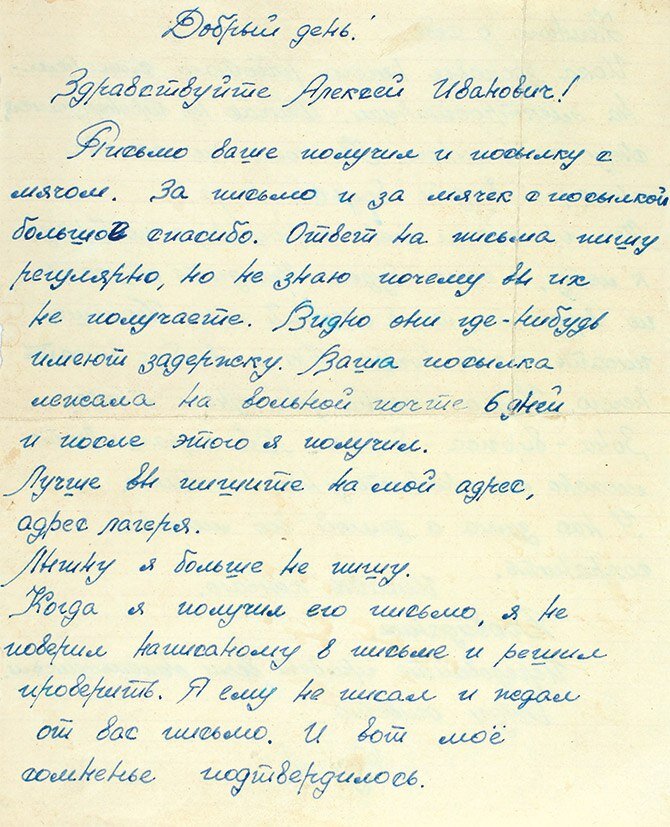 Добрый день!
Здравствуйте Алексей Иванович!
Письмо ваше получил и посылку с
мячом. За письмо и за мячек с посылкой
большое спасибо. Ответ на письма пишу
регулярно, но не знаю почему вы их
не получаете. Видно они где-нибудь
имеют задержку. Ваша посылка
лежала на вольной почте 6 дней
и после этого я получил.
Лучше вы пишите на мой адрес,
адрес лагеря.
я больше не пишу.
Когда я получил его письмо, я не
поверил написаному в письме и решил
проверить. Я ему не писал и ждал
от вас письмо. И вот моё
сомненье подтвердилось.